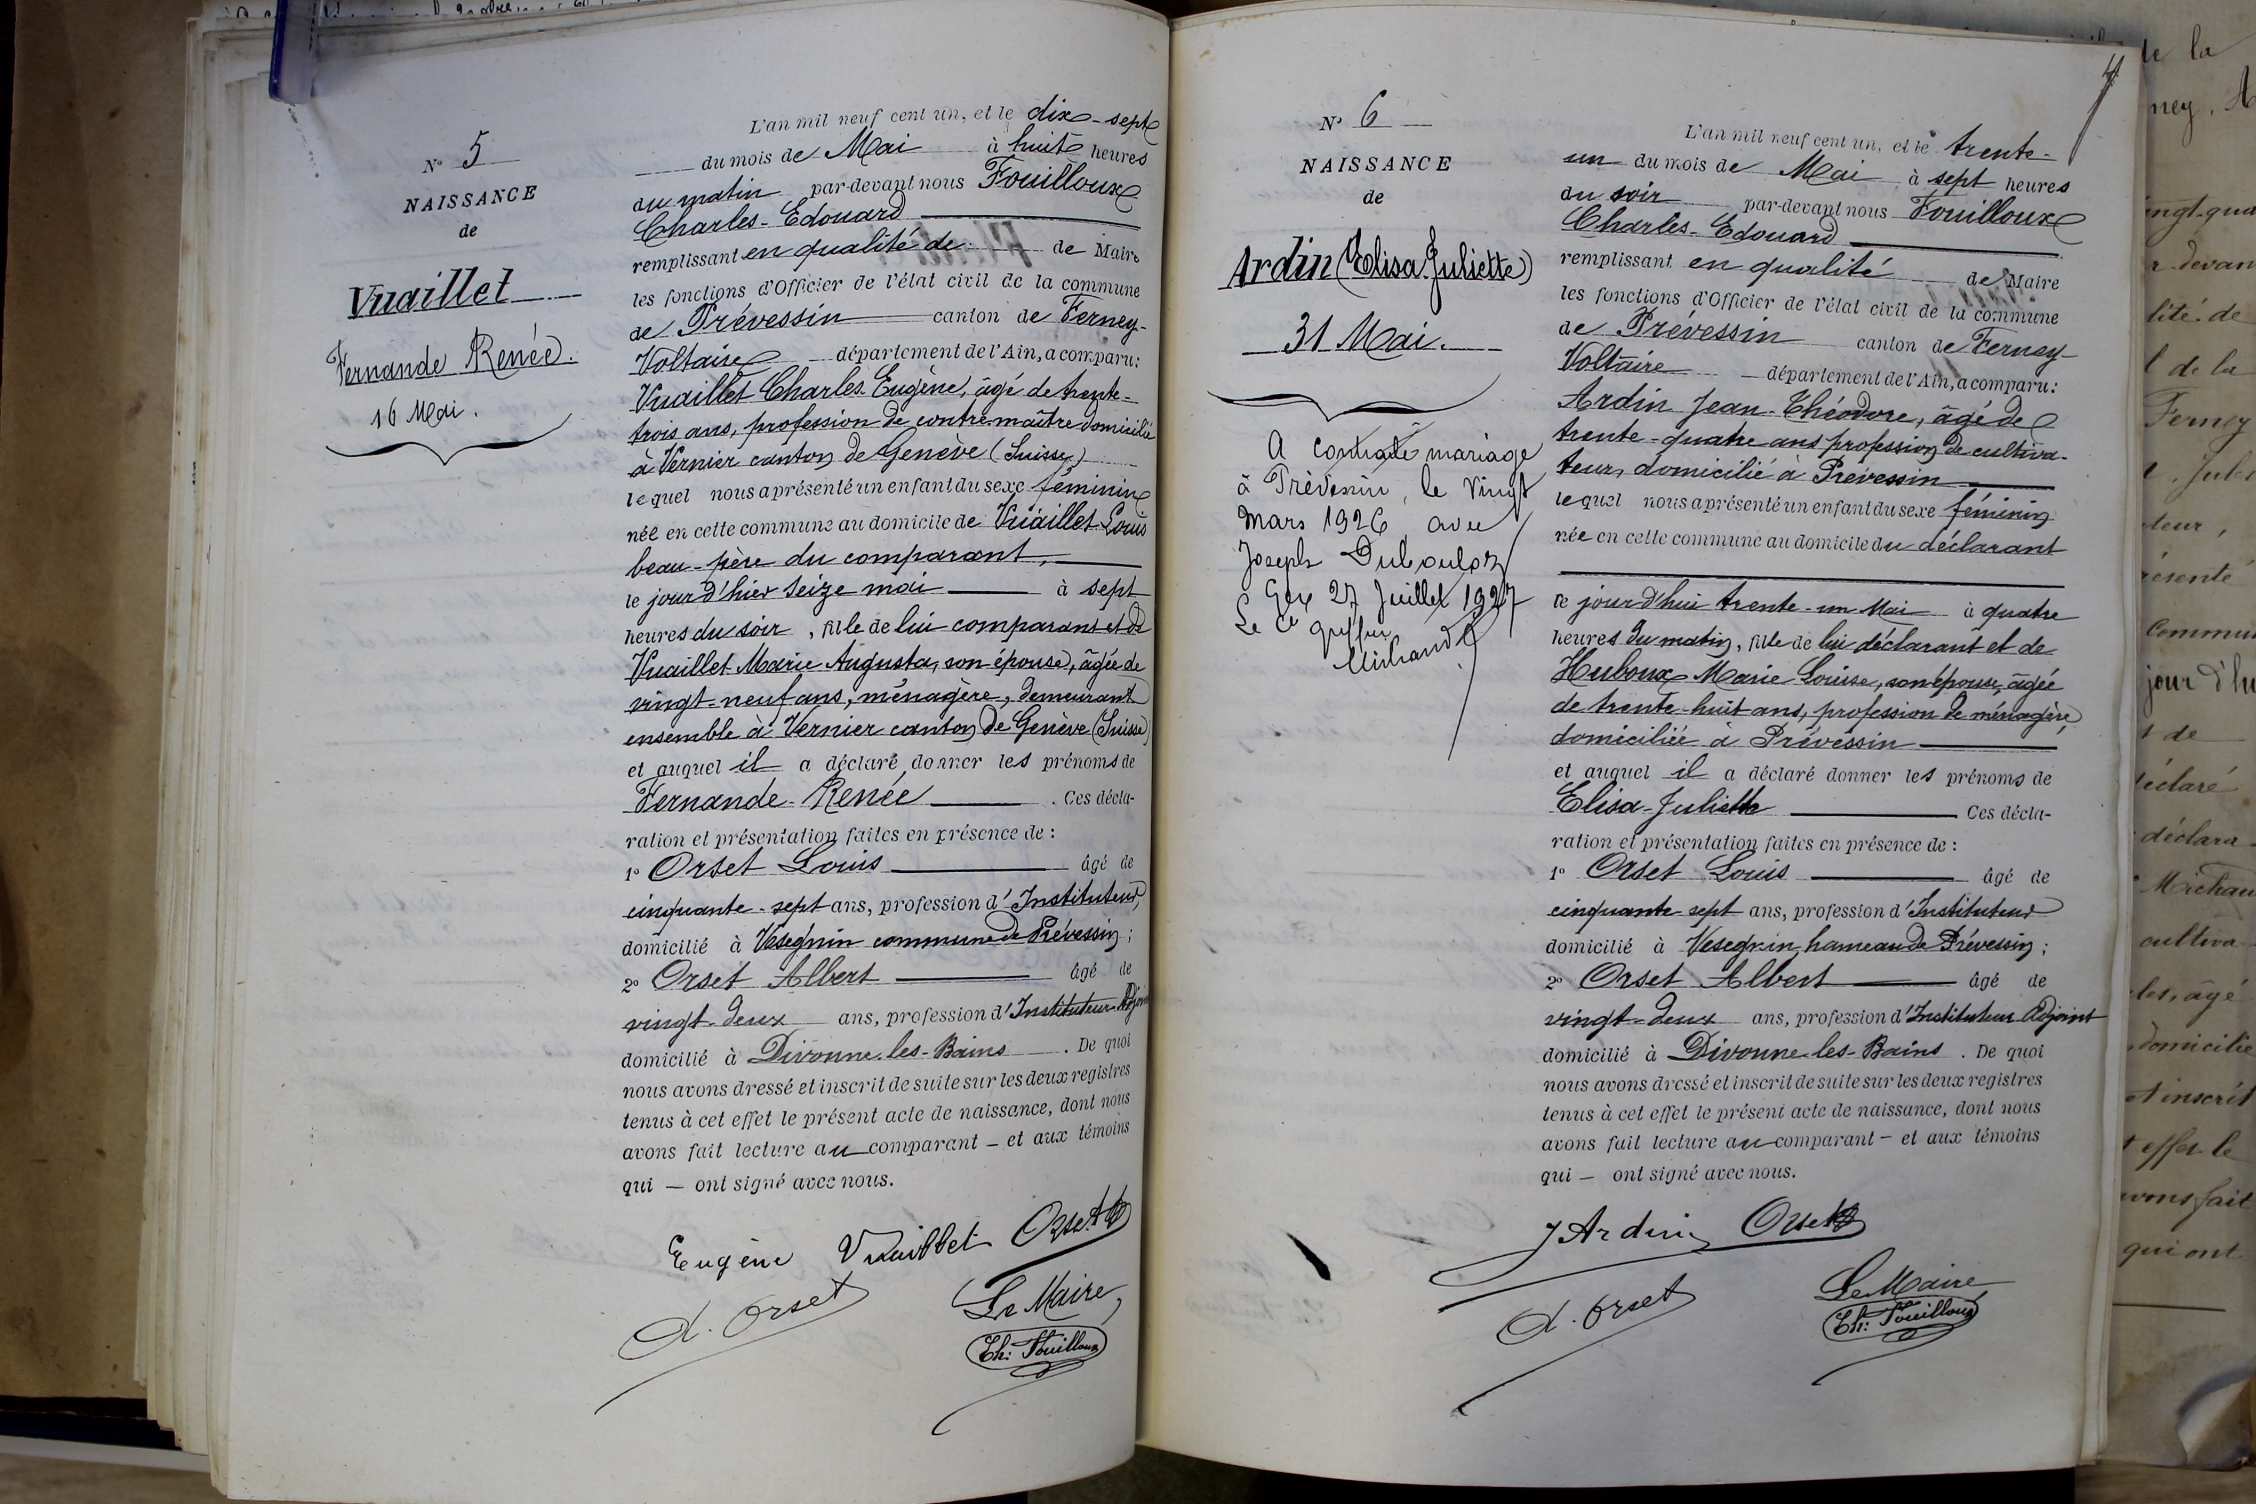 N° 5
NAISSANCE
de
Vuaillet
Fernande Renée.
16 Mai.
L'an mil neuf cent un, et le dix-sept
du mois de Mai à huit heures
du matin par-devant nous Fouilloux
Charles-Edouard
remplissant en qualité de de Maire
les fonctions d'Officier de l'état civil de la commune
de Prévessin canton de Ferney-
Voltaire département de l'Ain, a comparu:
Vuaillet Charles-Eugène, âgé de trente-
trois ans, profession de contre-maître domicilié
à Vernier canton de Genève (Suisse)
lequel nous a présenté un enfant du sexe féminin
née en cette commune au domicile de Vuaillet Louis
beau-père du comparant,
le jour d'hier seize mai à sept
heures du soir, fille de lui comparant et de
Vuaillet Marie Augusta, son épouse, âgée de
vingt-neuf ans, ménagère, demeurant
ensemble à Vernier canton de Genève (Suisse)
et auquel il a déclaré donner les prénoms de
Fernande-Renée. Ces décla-
ration et présentation faites en présence de :
1° Orset Louis âgé de
cinquante-sept ans, profession d'Instituteur,
domicilié à Vésegnin commune de Prévessin;
2° Orset Albert âgé de
vingt-deux ans, profession d'Instituteur-Adjoint
domicilié à Divonne-les-Bains. De quoi
nous avons dressé et inscrit de suite sur les deux registres
tenus à cet effet le présent acte de naissance, dont nous
avons fait lecture au comparant - et aux témoins
qui - ont signé avec nous.
Eugène Vuaillet Orset
A. Orset Le Maire,
Ch: Fouilloux
N° 6
NAISSANCE
de
Ardin (Elisa Juliette)
31 Mai.
A contracté mariage
à Prévessin, le vingt
mars 1926 avec
Joseph Dubouloz
Gex 27 Juillet 1927
Le Cis greffier
Michaud
L'an mil neuf cent un, et le trente-
un du mois de Mai à sept heures
du soir par-devant nous Fouilloux
Charles-Edouard
remplissant en qualité de Maire
les fonctions d'Officier de l'état civil de la commune
de Prévessin canton de Ferney-
Voltaire département de l'Ain, a comparu:
Ardin Jean-Théodore, âgé de
trente-quatre ans profession de cultiva-
teur, domicilié à Prévessin
lequel nous a présenté un enfant du sexe féminin
née en cette commune au domicile du déclarant
le jour d'hui trente-un Mai à quatre
heures du matin, fille de lui déclarant et de
Huboux Marie Louise, son épouse, âgée
de trente-huit ans, profession de ménagère,
domiciliée à Prévessin
et auquel il a déclaré donner les prénoms de
Elisa-Juliette Ces décla-
ration et présentation faites en présence de :
1° Orset Louis âgé de
cinquante-sept ans, profession d'Instituteur
domicilié à Vesegnin hameau de Prévessin;
2° Orset Albert âgé de
vingt-deux ans, profession d'Instituteur Adjoint
domicilié à Divonne-les-Bains. De quoi
nous avons dressé et inscrit de suite sur les deux registres
tenus à cet effet le présent acte de naissance, dont nous
avons fait lecture au comparant - et aux témoins
qui - ont signé avec nous.
J Ardin Orset
A. Orset Le Maire
Ch: Fouilloux